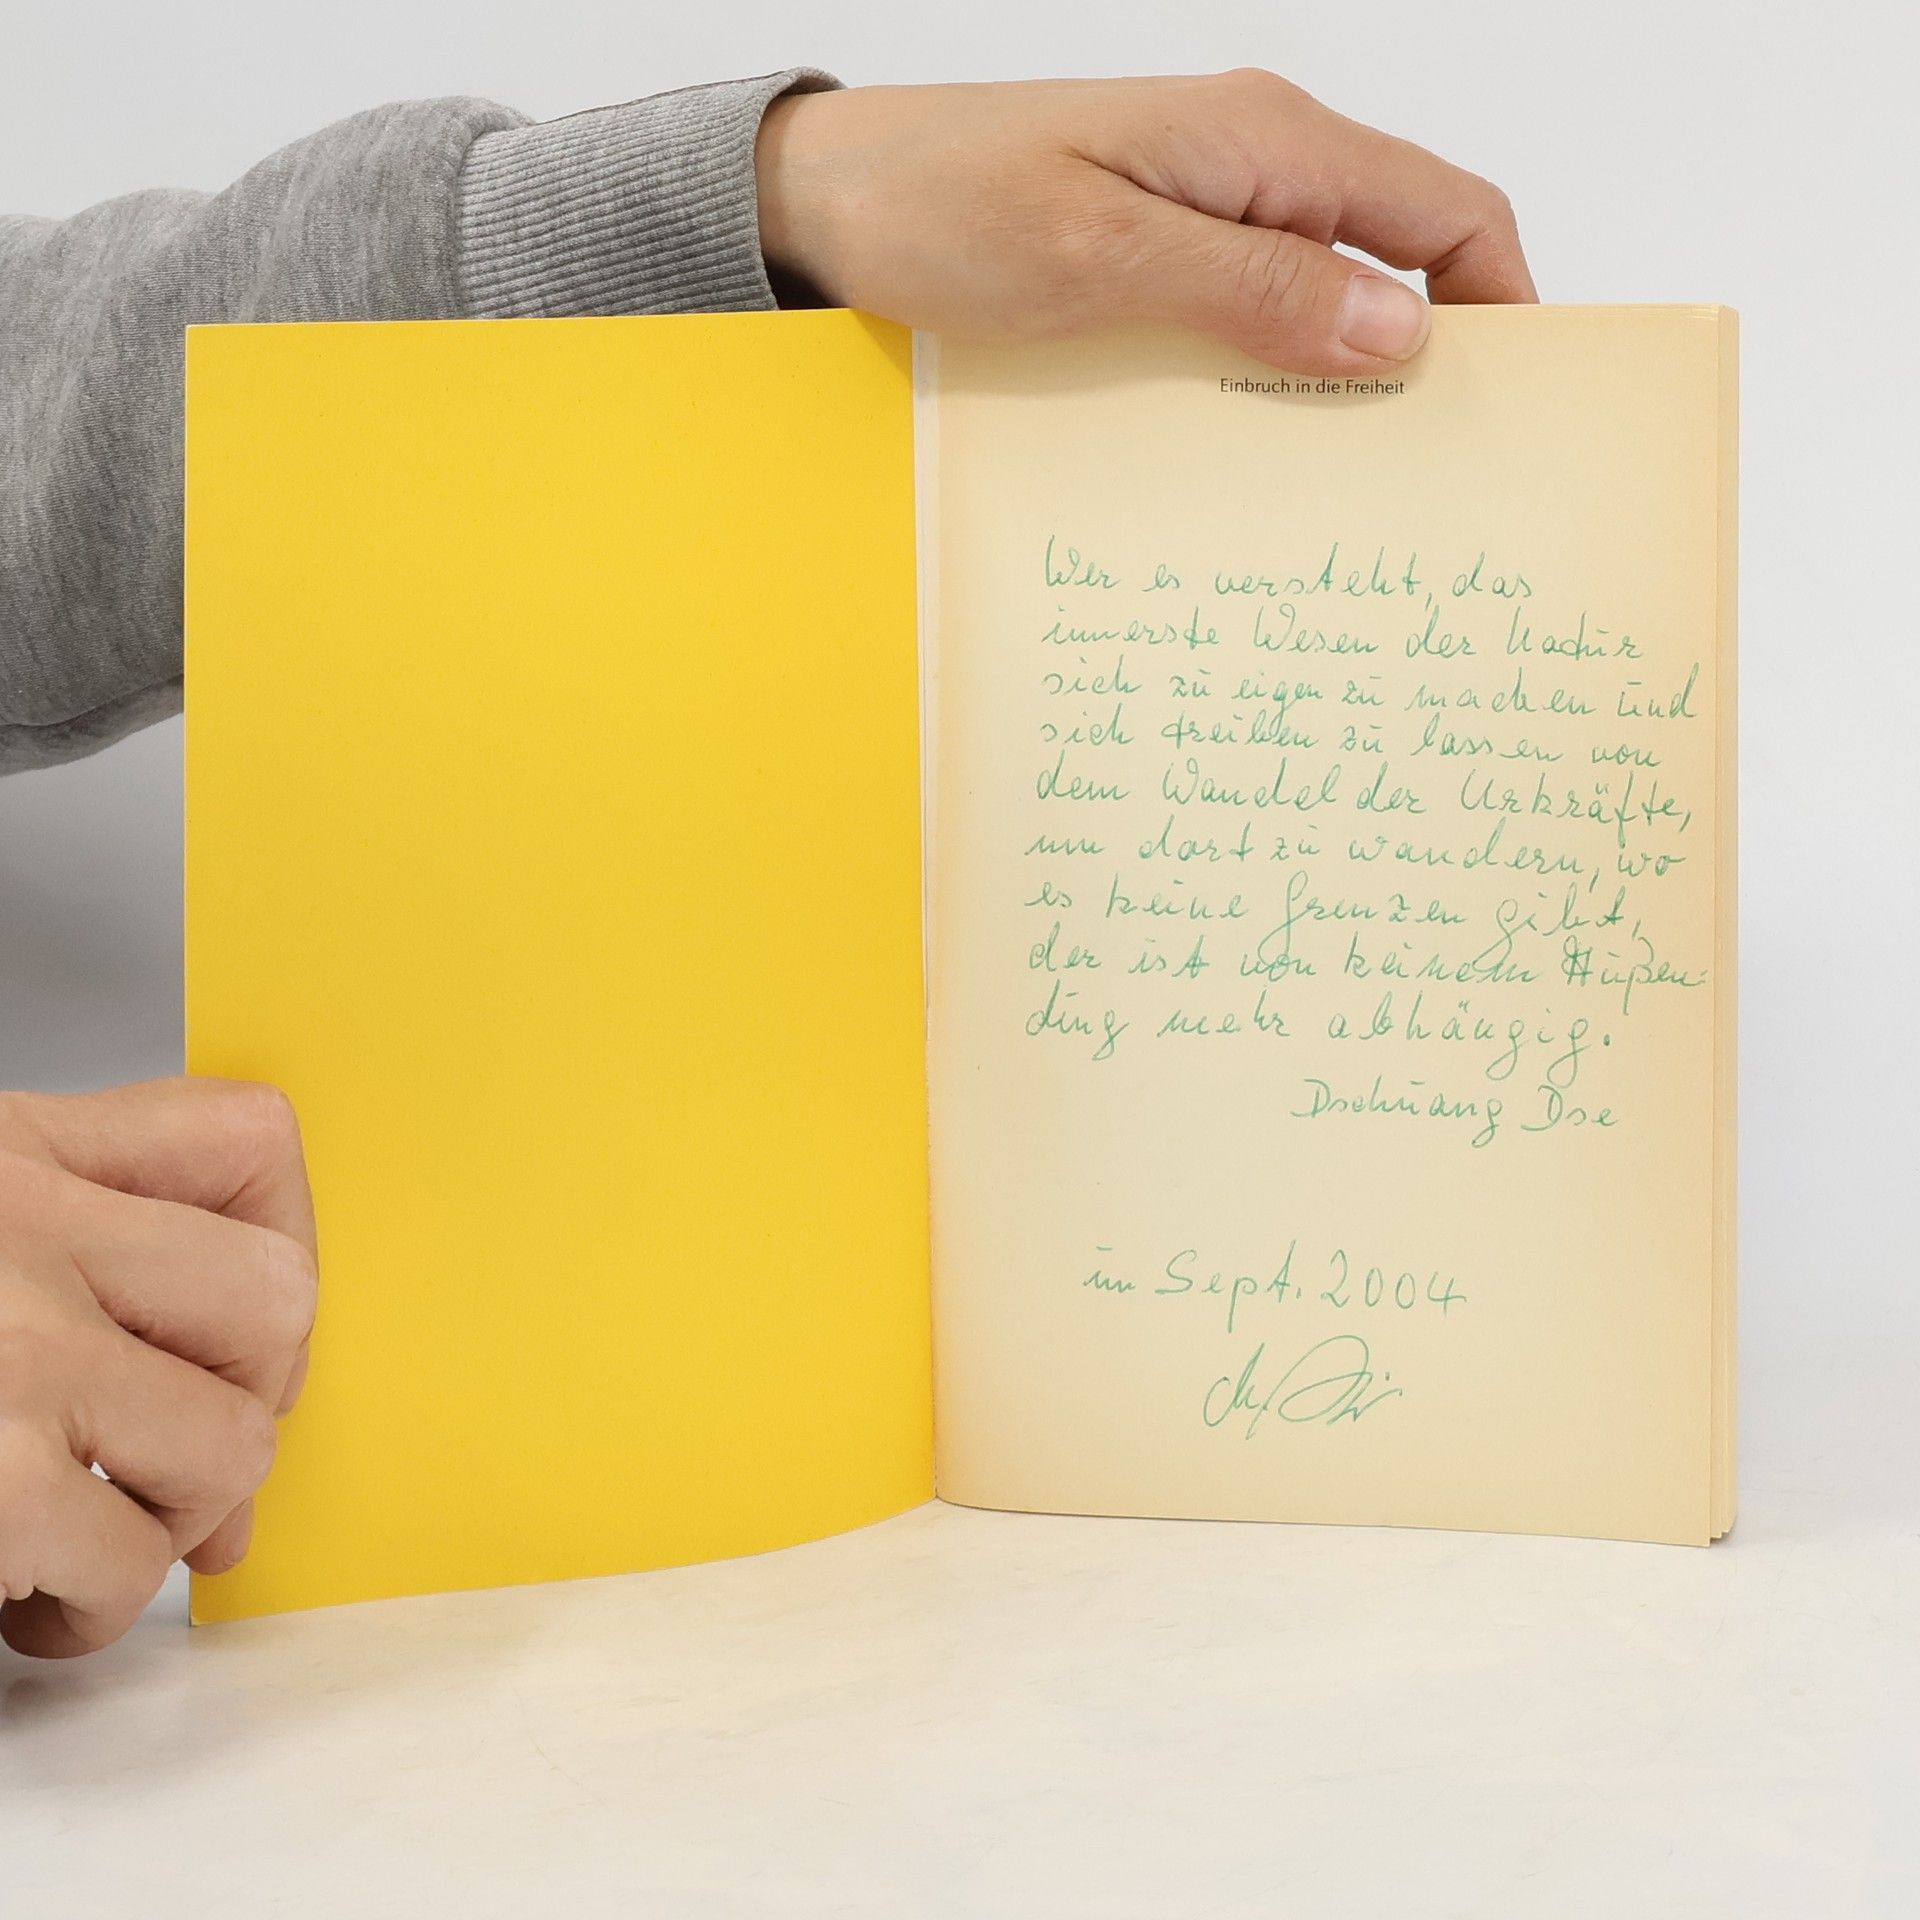 Einbruch in die Freiheit
Wer es versteht, das
innerste Wesen der Natur
sich zu eigen zu machen und
sich treiben zu lassen von
dem Wandel der Urkräfte,
um dort zu wandern, wo
es keine Grenzen gibt,
der ist von keinem Außen-
ding mehr abhängig.
Dschuang Dse
im Sept. 2004